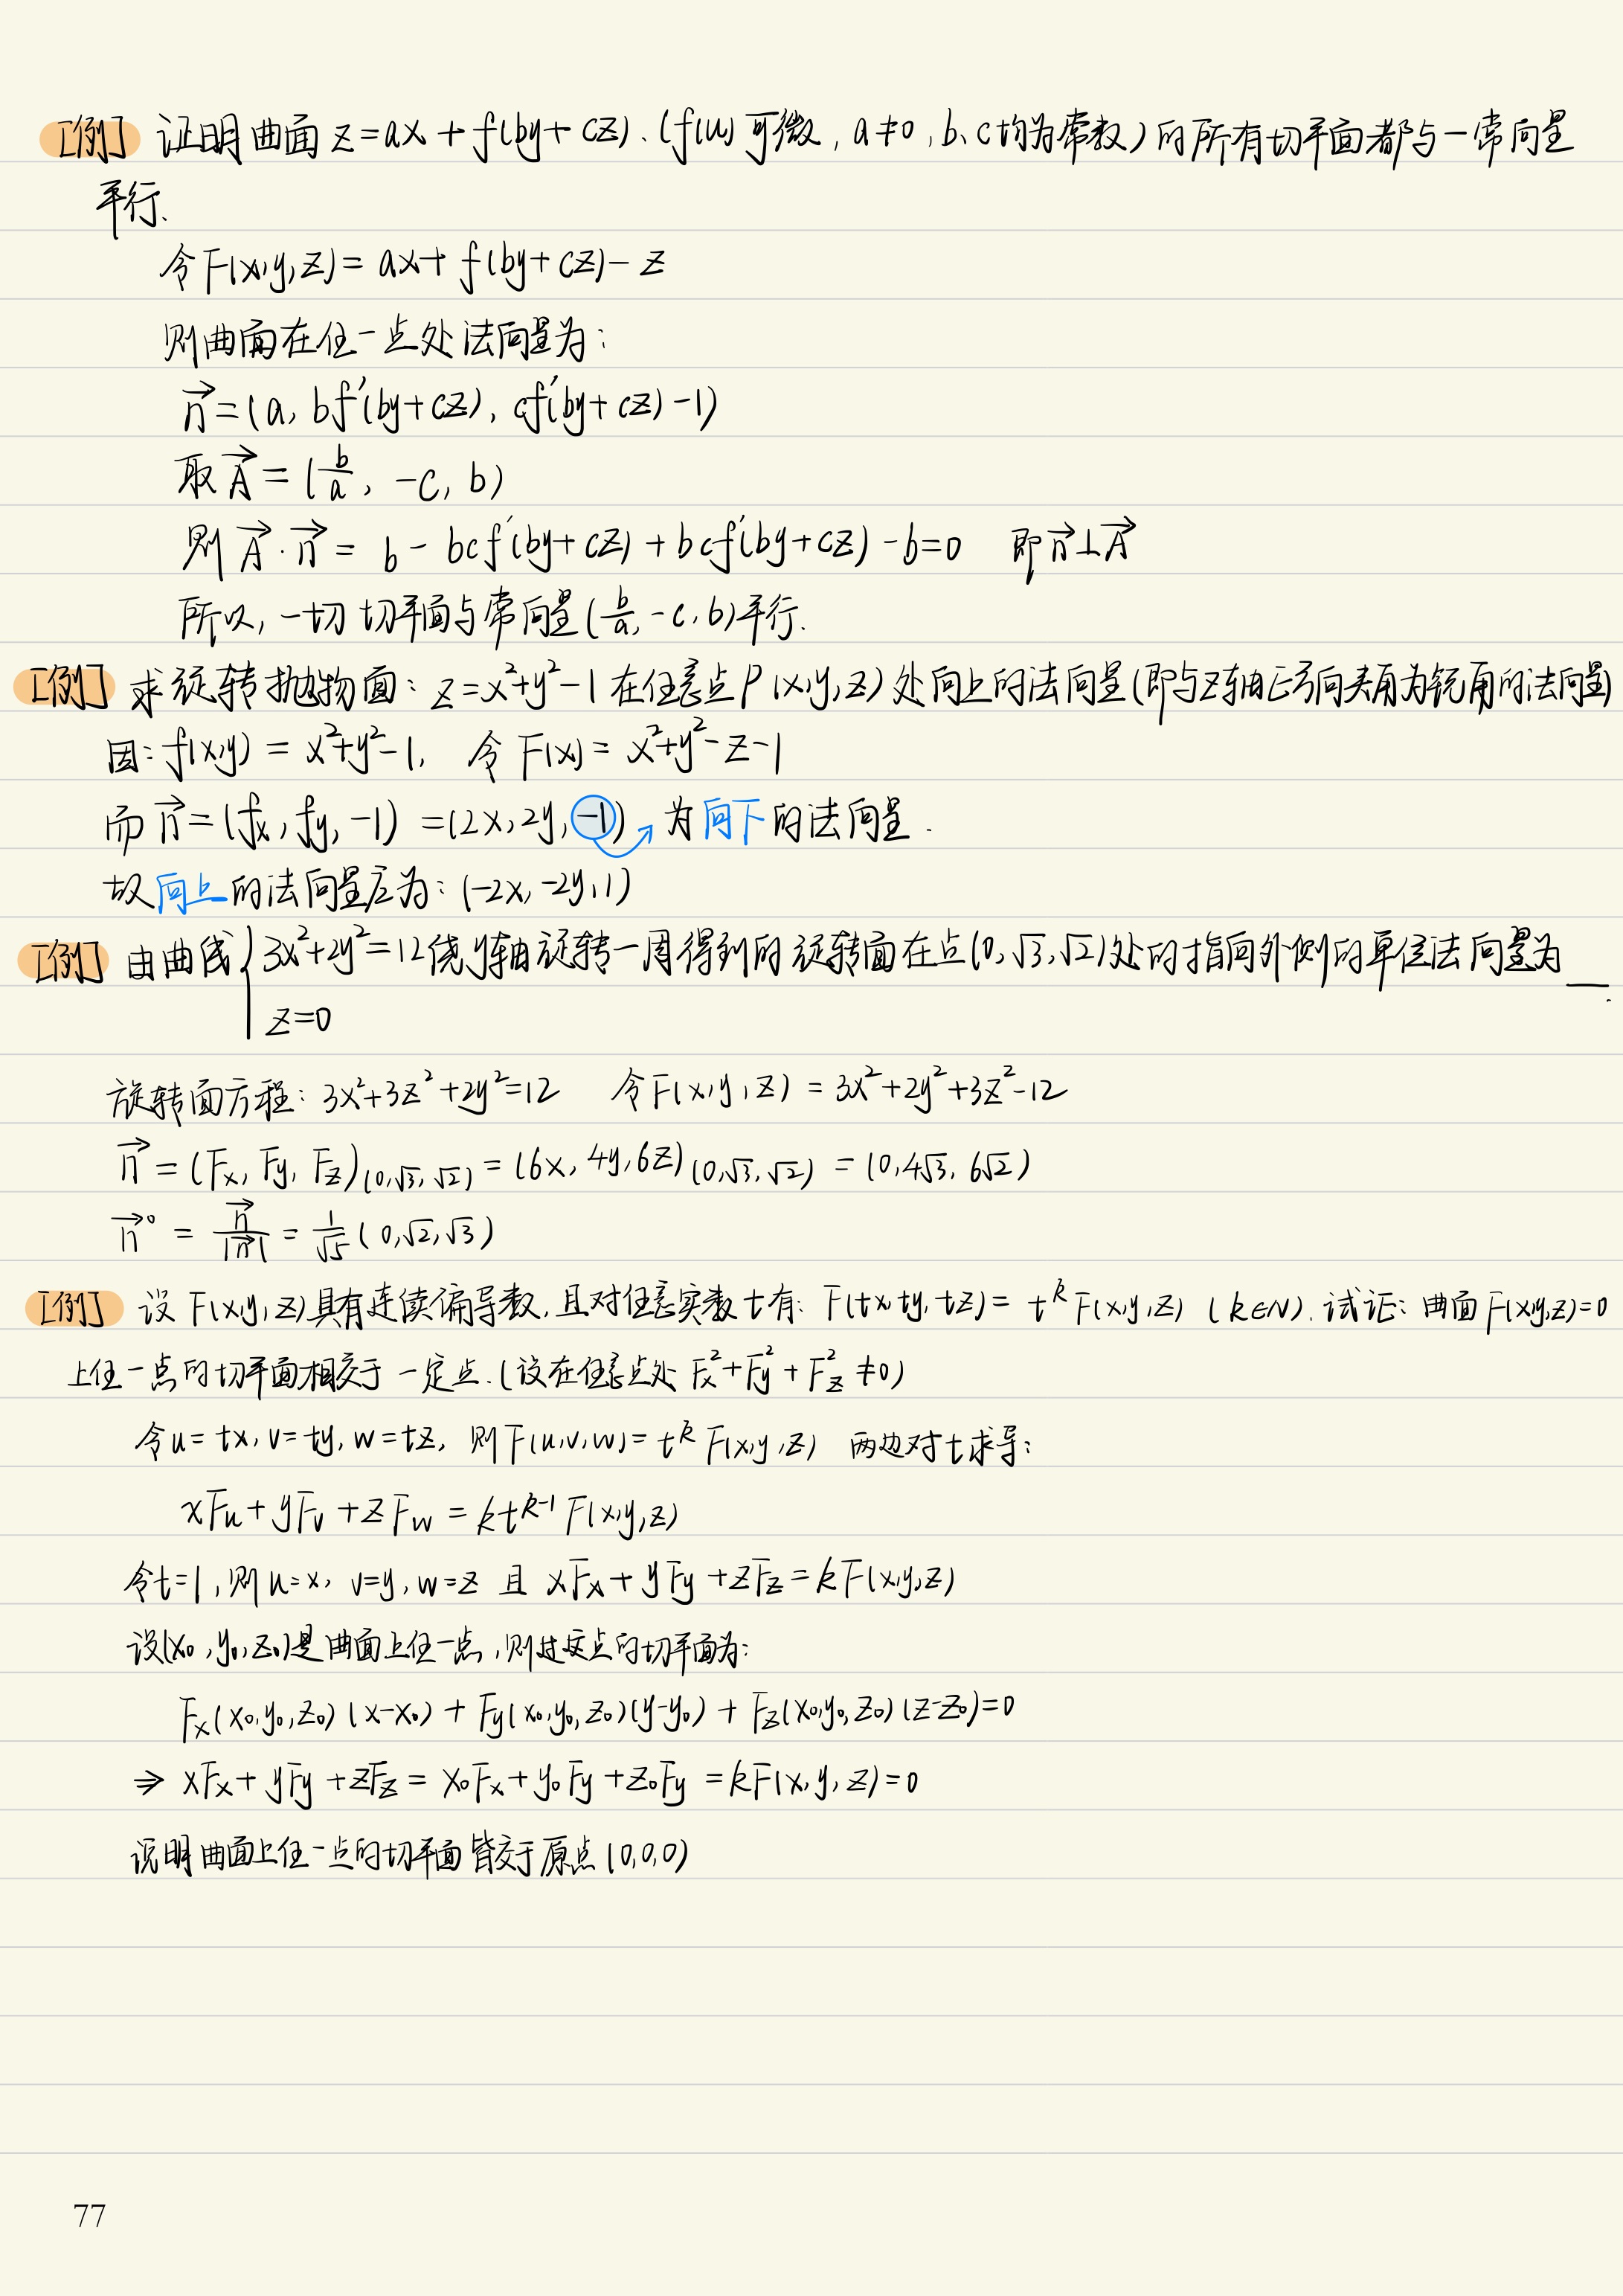 [例] 证明曲面 z=ax+f(by+cz)、(f(u)可微, a≠0, b、c均为常数) 的所有切平面都与一常向量
平行.
令F(x,y,z)= ax+ f(by+cz)- z
则曲面在任一点处法向量为:
n⃗=(a, bf′(by+cz), cf′(by+cz)-1)
取A⃗=(b/a, -c, b)
则 A⃗·n⃗= b- bcf′(by+cz)+bcf′(by+cz)-b=0 即n⃗⊥A⃗
所以, 一切切平面与常向量(b/a, -c, b)平行.
[例] 求旋转抛物面: z=x²+y²-1 在任意点P(x,y,z)处向上的法向量(即与z轴正方向夹角为锐角的法向量)
因: f(x,y)= x²+y²-1, 令F(x)= x²+y²-z-1
而n⃗=(fx, fy, -1) =(2x, 2y, -1) 为向下的法向量.
故向上的法向量应为: (-2x, -2y, 1)
[例] 由曲线{3x²+2y²=12绕y轴旋转一周得到的旋转面在点(0,√3,√2)处的指向外侧的单位法向量为__.
z=0
旋转面方程: 3x²+3z²+2y²=12 令F(x,y,z)= 3x²+2y²+3z²-12
n⃗=(Fx, Fy, Fz)(0,√3,√2) =(6x, 4y, 6z)(0,√3,√2) =(0, 4√3, 6√2)
n⃗° = n⃗/|n⃗| = 1/√5 (0,√2,√3)
[例] 设F(x,y,z)具有连续偏导数, 且对任意实数t有: F(tx,ty,tz)= t^k F(x,y,z) (k∈N). 试证: 曲面F(x,y,z)=0
上任一点的切平面相交于一定点.(设在任意点处 Fx²+Fy²+Fz²≠0)
令u=tx, v=ty, w=tz, 则F(u,v,w)= t^k F(x,y,z) 两边对t求导:
xFu+yFv+zFw= kt^(k-1) F(x,y,z)
令t=1, 则u=x, v=y, w=z 且 xFx+yFy+zFz= kF(x,y,z)
设(x₀,y₀,z₀)是曲面上任一点, 则过该点的切平面为:
Fx(x₀,y₀,z₀)(x-x₀)+Fy(x₀,y₀,z₀)(y-y₀)+Fz(x₀,y₀,z₀)(z-z₀)=0
⇒ xFx+yFy+zFz= x₀Fx+y₀Fy+z₀Fy =kF(x,y,z)=0
说明曲面上任一点的切平面皆交于原点(0,0,0)
77